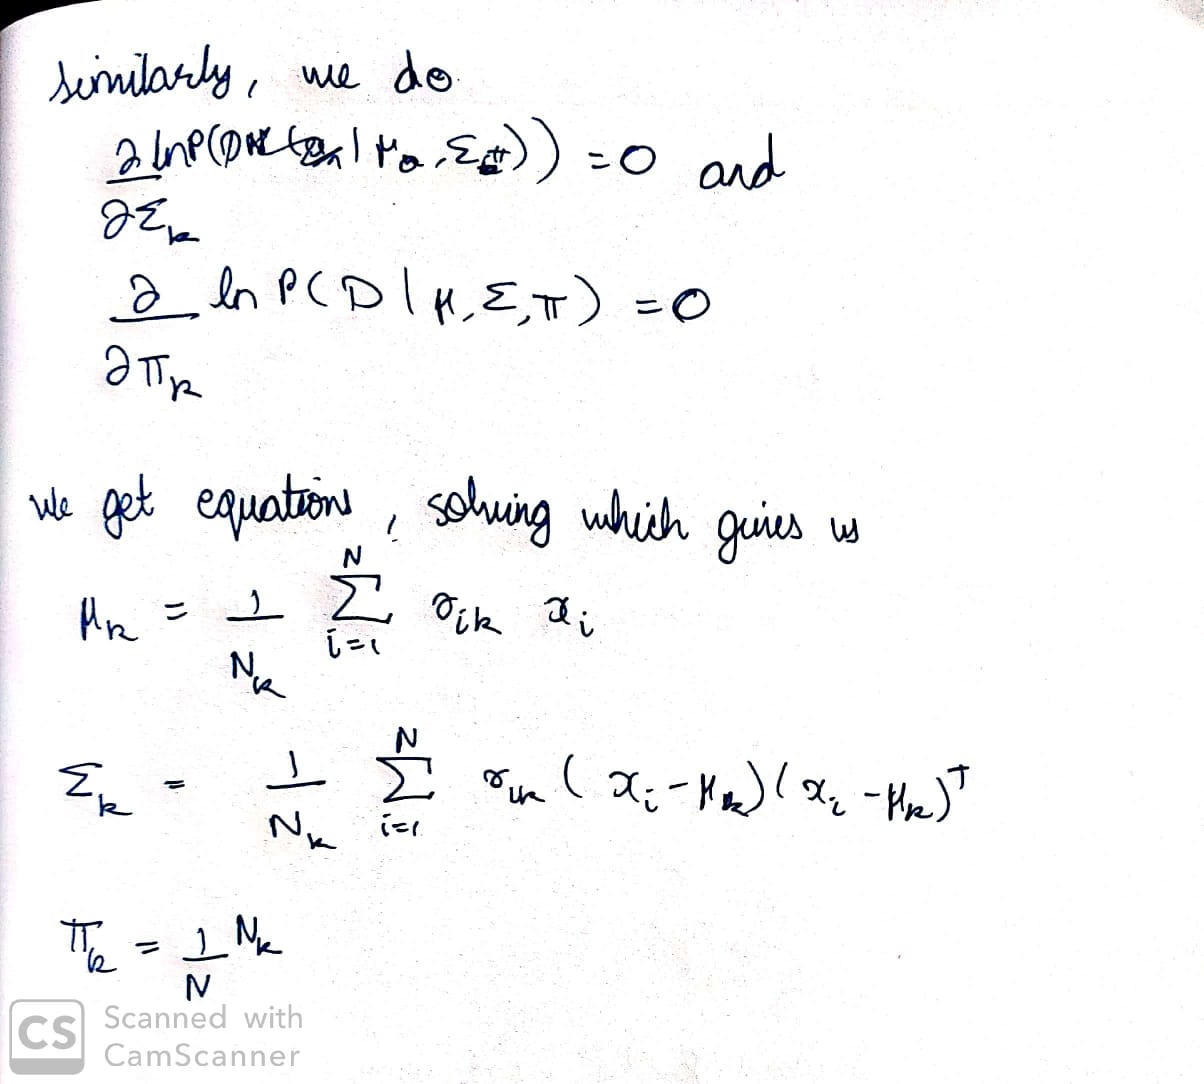 similarly, we do
∂ lnP(D | μ, Σ)) = 0 and
∂Σk
∂ ln P(D | μ, Σ, π) = 0
∂πk
We get equations, solving which gives us
μk = 1/Nk Σ_{i=1}^{N} γik xi
Σk = 1/Nk Σ_{i=1}^{N} γik (xi - μk)(xi - μk)^T
πk = 1/N Nk
CS Scanned with
CamScanner